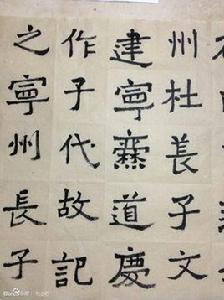 州杜長子文
建寧爨道慶
作子代故記
之寧州長子